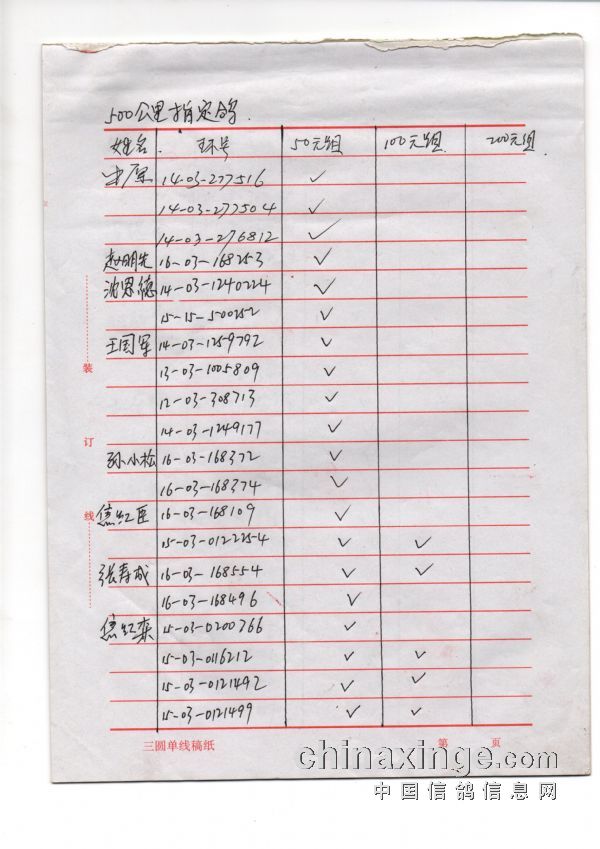 500公里指定鸽
姓名 环号 50元组 100元组 200元组
14-03-277516 ✓
14-03-277504 ✓
14-03-276812 ✓
赵明先 16-03-168253 ✓
沈恩德 14-03-1240224 ✓
15-15-500252 ✓
王国军 14-03-1259792 ✓
13-03-1005809 ✓
12-03-308713 ✓
14-03-1249177 ✓
孙小松 16-03-168372 ✓
16-03-168374 ✓
焦红臣 16-03-168109 ✓
15-03-0122254 ✓ ✓
张寿成 16-03-168554 ✓ ✓
16-03-168496 ✓
焦红栾 15-03-0200766 ✓
15-03-0116212 ✓ ✓
15-03-0121492 ✓ ✓
15-03-0121499 ✓ ✓
装
订
线
三圆单线稿纸 第 页
chinaxinge.com
中国信鸽信息网